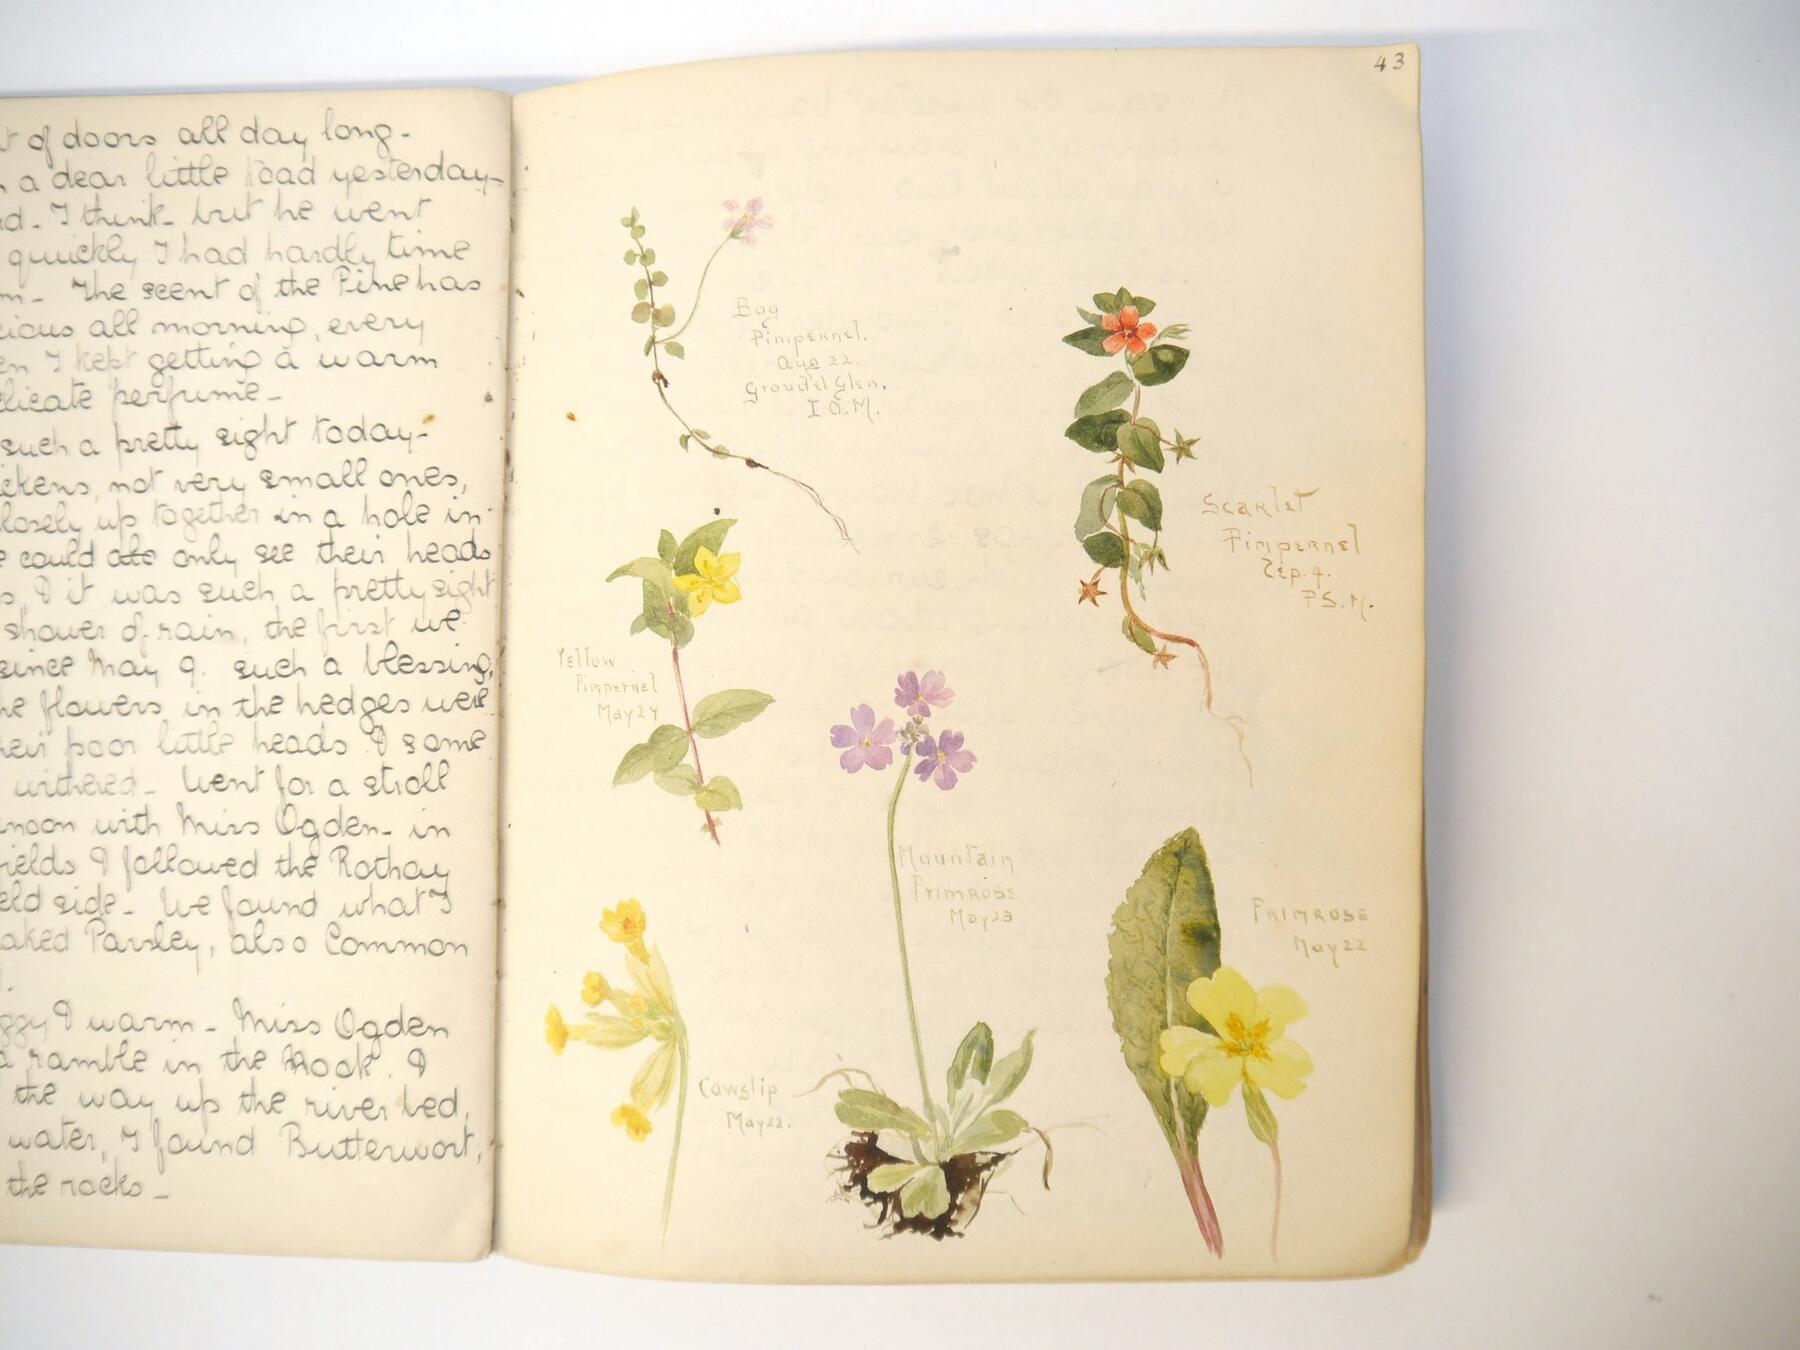 of doors all day long-
a dear little toad yesterday-
I think- but he went
quickly I had hardly time
The scent of the Pine has
all morning, every
I kept getting a warm
perfume-
such a pretty sight today-
not very small ones,
up together in a hole in
could only see their heads
& it was such a pretty sight
shower of rain, the first we
since May 9. such a blessing,
flowers in the hedges were
poor little heads & some
withered- Went for a stroll
with Miss Ogden- in
& followed the Rothay
side- We found what I
Parsley, also Common
& warm- Miss Ogden
ramble in the Rock. &
the way up the river bed,
water, I found Butterwort,
the rocks-
43
Bog
Pimpernel.
Aug 22.
Groudel Glen.
I.O.M.
Scarlet
Pimpernel
Sep. 4.
P.S.M.
Yellow
Pimpernel
May 24
Mountain
Primrose
May 23
PRIMROSE
May 22
Cowslip
May 22.